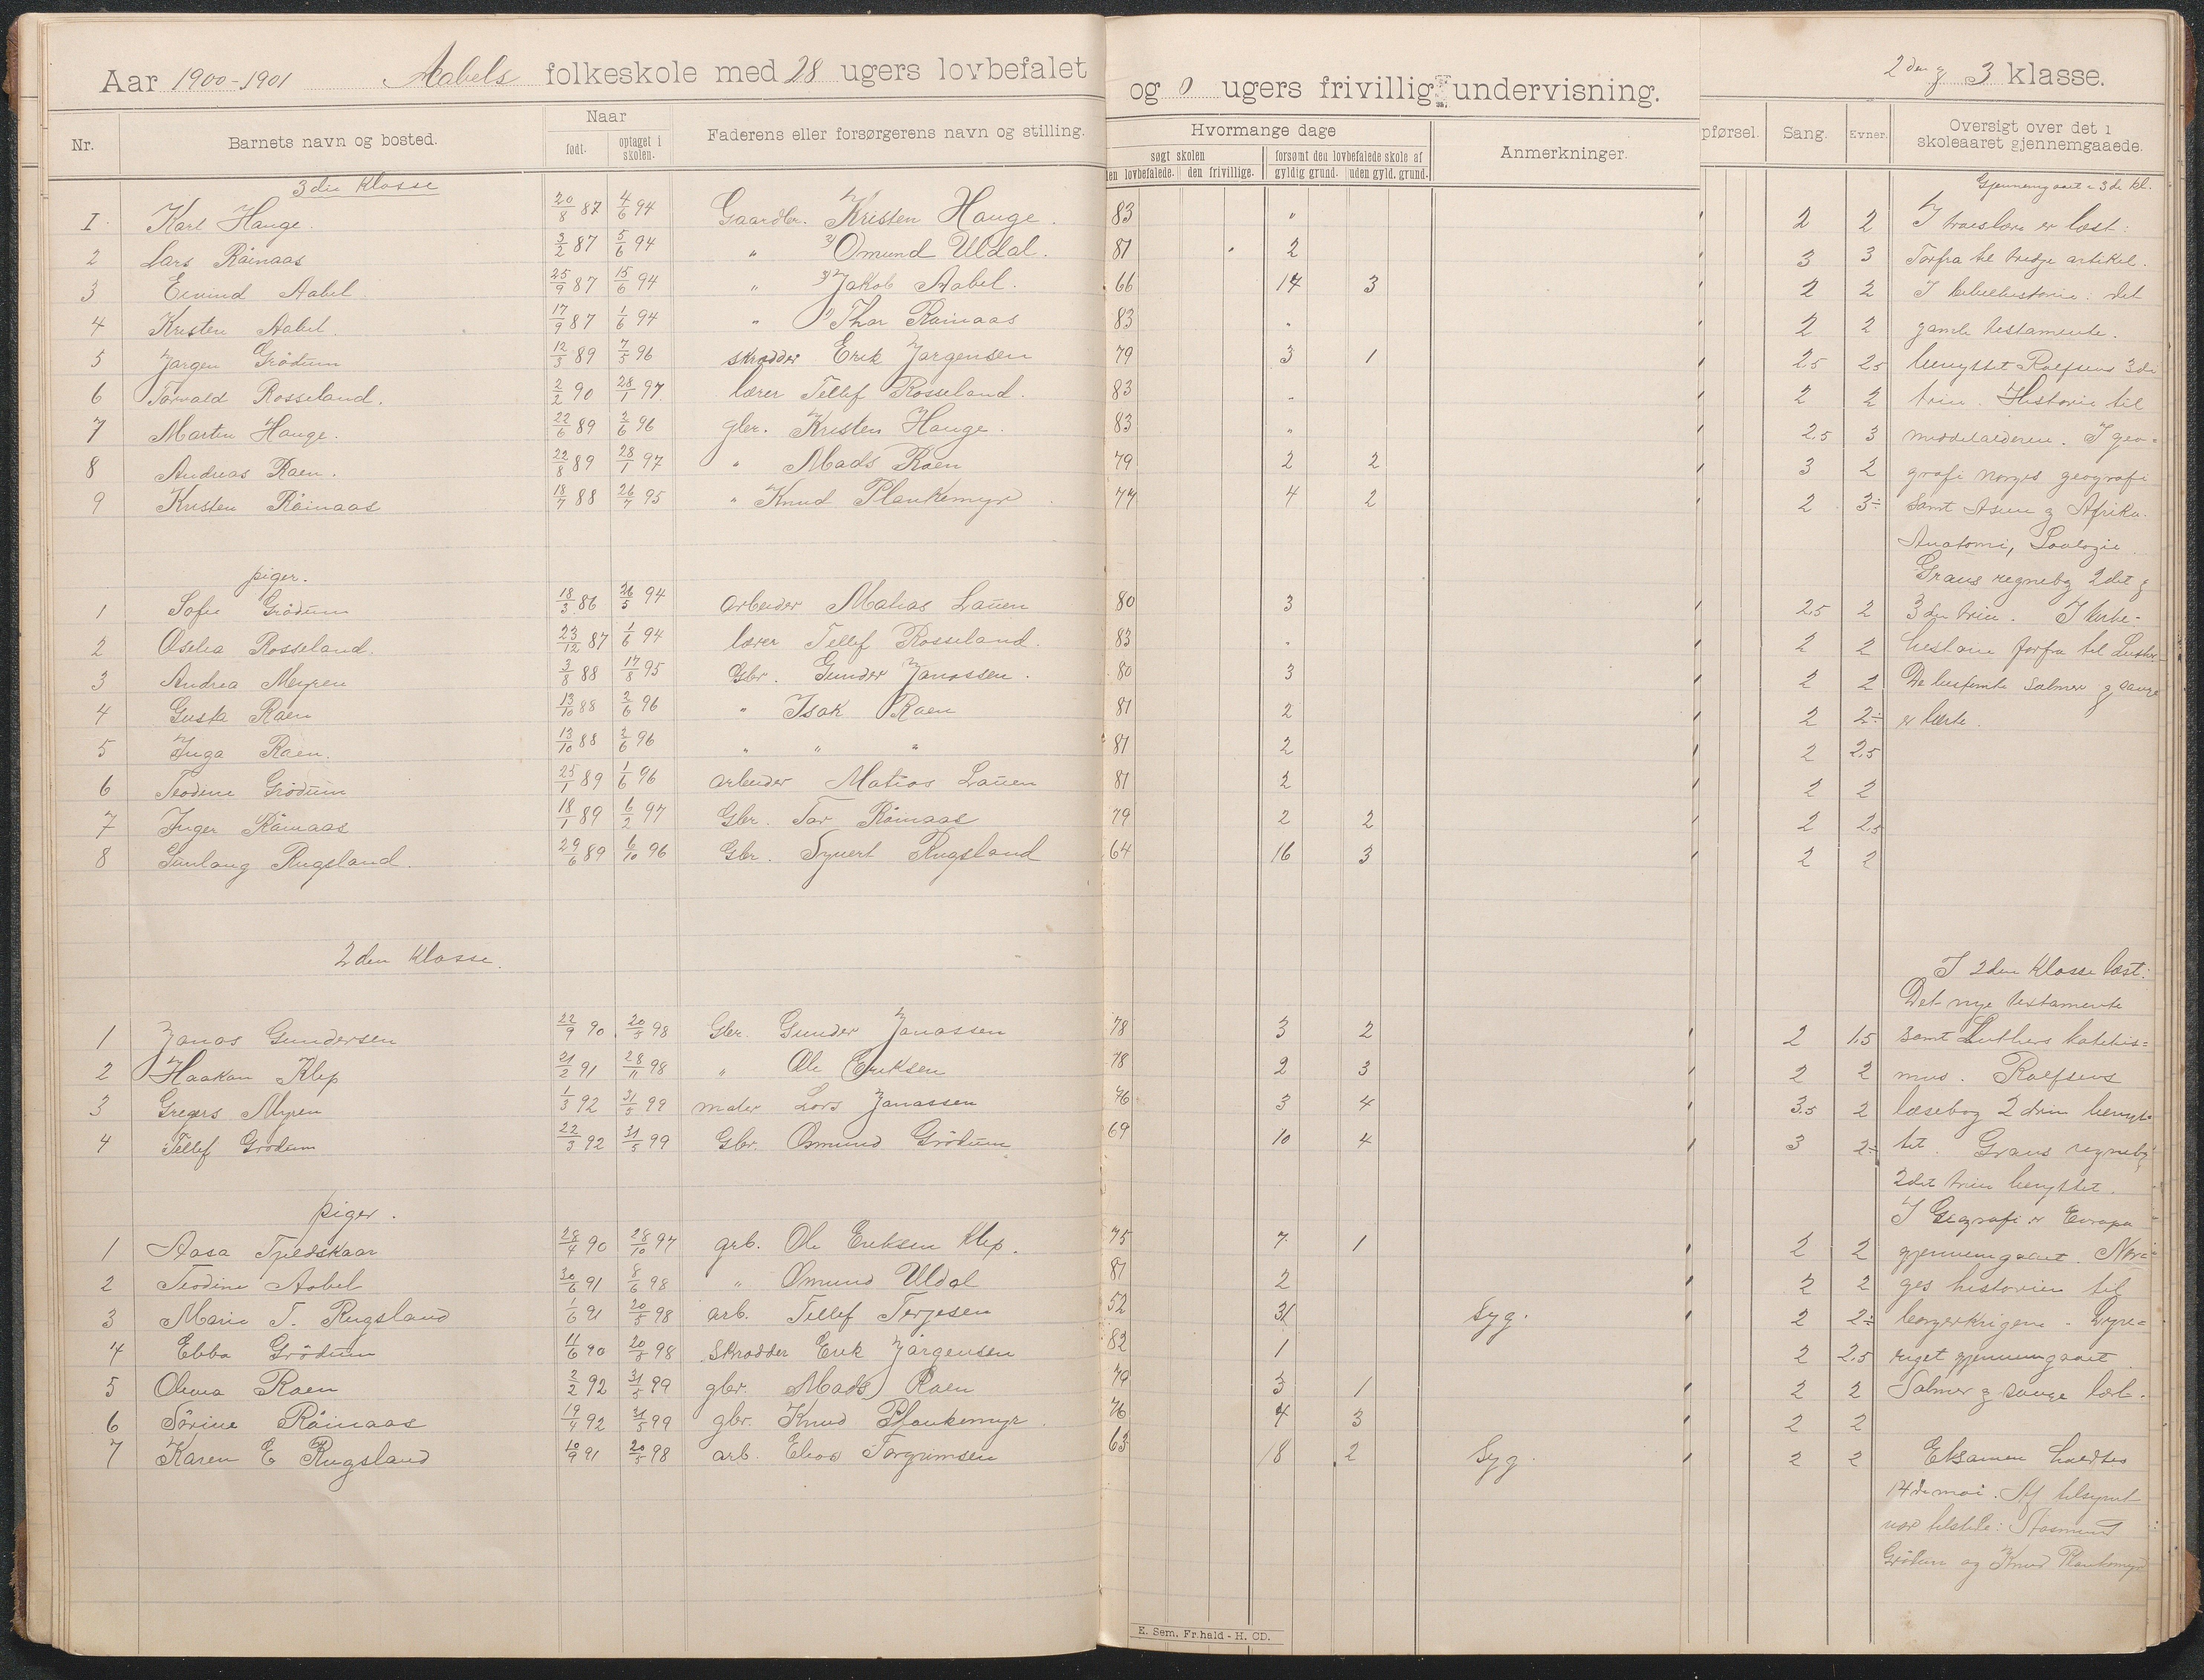 Aar 1900-1901 Aabels folkeskole med 28 ugers lovbefalet og 0 ugers frivillig undervisning. 2den & 3 klasse.
Nr. Barnets navn og bosted. Naar født. optaget i skolen. Faderens eller forsørgerens navn og stilling.
Hvormange dage Anmerkninger. pførsel. Sang. Evner. Oversigt over det i skoleaaret gjennemgaaede.
søgt skolen forsømt den lovbefalede skole af
en lovbefalede. den frivillige. gyldig grund. uden gyld. grund.
3die Klasse
1 Karl Hauge. 20/8 87 4/6 94 Gaardbr. Kristen Hauge. 83 " 2 2
2 Lars Råinaas 3/2 87 5/6 94 " Omund Uldal. 81 2 3 3
3 Eivind Aabel 25/9 87 15/6 94 " Jakob Aabel. 66 14 3 2 2
4 Kristen Aabel. 17/9 87 1/6 94 " Thor Råinaas 83 " 2 2
5 Jørgen Grödum 12/3 89 7/5 96 skrædder Erik Jørgensen 79 3 1 2.5 2.5
6 Torvald Rosseland. 2/2 90 28/1 97 lærer Tellef Rosseland. 83 " 2 2
7 Martin Hauge. 22/6 89 2/6 96 gbr. Kristen Hauge. 83 " 2.5 3
8 Andreas Raen. 22/8 89 28/1 97 " Mads Raen 79 2 2 3 2
9 Kristen Råinaas 18/7 88 26/7 95 " Knud Plankemyr 77 4 2 2 3÷
piger.
1 Sofie Grödum 18/3 86 26/5 94 arbeider Matias Lauen 80 3 2.5 2
2 Oselia Rosseland. 23/12 87 1/6 94 lærer Tellef Rosseland. 83 " 2 2
3 Andrea Myren 3/8 88 17/8 95 Gbr. Gunder Janassen. 80 3 2 2
4 Gusta Raen 13/10 88 2/6 96 " Isak Raen 81 2 2 2÷
5 Inga Raen. 13/10 88 2/6 96 " " " 81 2 2 2.5
6 Teodine Grödum 25/1 89 1/6 96 arbeider Matias Lauen 81 2 2 2
7 Inger Råinaas 18/1 89 6/2 97 Gbr. Tor Råinaas 79 2 2 2 2.5
8 Gunlaug Rugsland. 29/6 89 6/10 96 Gbr. Syvert Rugsland 64 16 3 2 2
2den Klasse.
1 Jonas Gundersen 22/9 90 20/5 98 Gbr. Gunder Janassen 78 3 2 2 1.5
2 Haakon Klep 21/2 91 28/11 98 " Ole Eriksen 78 2 3 2 2
3 Gregers Myren 1/3 92 31/5 99 maler Lars Janassen 76 3 4 3.5 2
4 Tellef Grödum 22/3 92 31/5 99 Gbr. Osmund Grödum 69 10 4 3 2÷
piger.
1 Aasa Tjeldskaar 28/4 90 28/10 97 grb. Ole Eriksen Klep. 75 7 1 2 2
2 Teodine Aabel 30/6 91 8/6 98 " Omund Uldal 81 2 2 2
3 Marie T. Rugsland 1/6 91 20/5 98 arb. Tellef Terjesen 52 31 Syg. 2 2÷
4 Ebba Grödum 11/6 90 20/5 98 Skrædder Erik Jørgensen 82 1 2 2.5
5 Olivia Raen 2/2 92 31/5 99 gbr. Mads Raen 79 3 1 2 2
6 Sörine Råinaas 19/4 92 31/5 99 gbr. Knud Plankemyr. 76 4 3 2 2
7 Karen E Rugsland 10/9 91 20/5 98 arb. Elias Torgrimsen 63 18 2 Syg. 2 2
Gjennemgaaet i 3die kl.
I troeslære er læst:
Forfra til tredje artikel.
I bibelhistorie: det
gamle testamente.
benyttet Rolfsens 3die
trin. Historie til
middelalderen. I geo-
grafi Norges geografi
samt Asien & Afrika.
Anatomi, Zoologie.
Graus regnebog 2det &
3die trin. I kirke-
historie forfra til Luther
De bestemte salmer & sange
er lærte.
I 2den Klasse læst:
Det nye testamente
samt Luthers katekis-
mus. Rolfsens
læsebog 2 trin benyt-
tet. Graus regnebog
2det trin benyttet.
I Geografi er Evropa
gjennemgaaet. Nor-
ges historien til
borgerkrigene. Dyre-
riget gjennemgaaet.
Salmer & sange lært.
Eksamen holdtes
14de mai. Af tilsynet
var tilstede: Aasmund
Grödum og Knud Plankemyr
E. Sem. Fr.hald - H. CD.